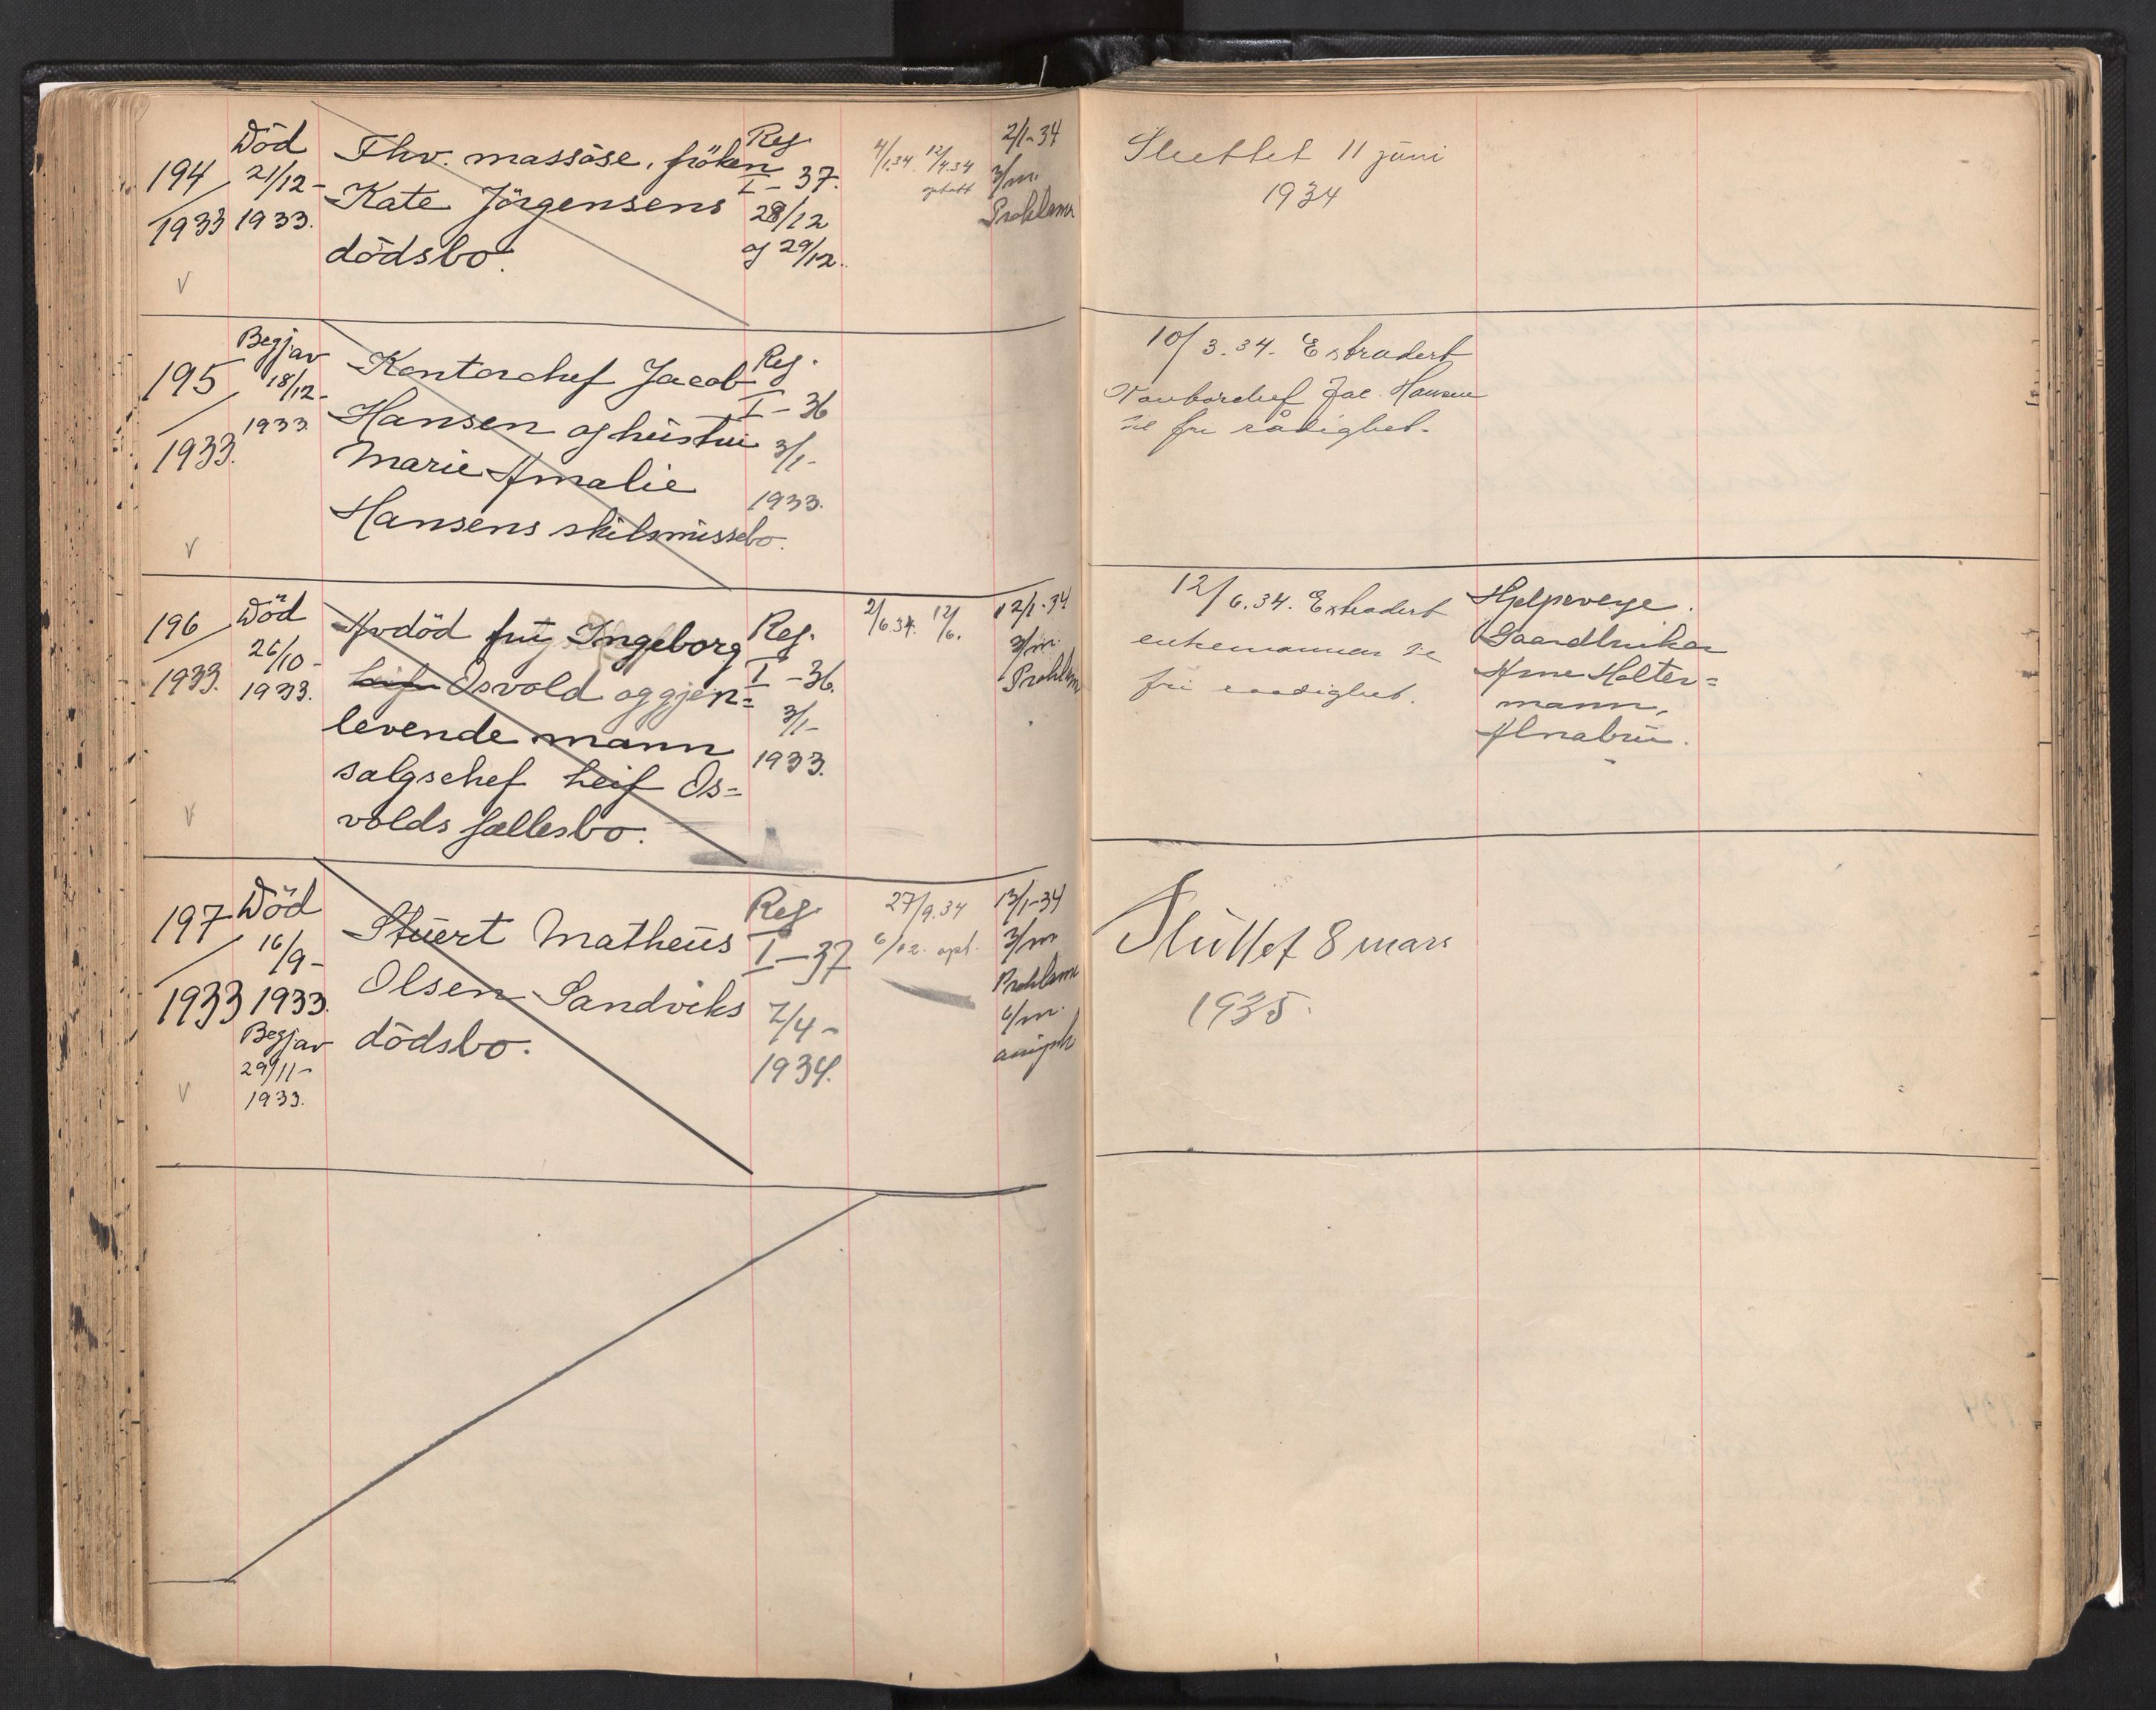 194
1933
Död
21/12-
1933.
Fhv. massöse, fröken
Kate Jörgensens
dödsbo.
Reg
I-37.
28/12
og 29/12.
4/1.34. 12/4.34
2/1-34
3/m.
Proklama
Sluttet 11 juni
1934
V
195
1933.
Begjær
18/12-
1933
Kontorchef Jacob
Hansen og hustru
Marie Amalie
Hansens skilsmissebo.
Reg.
I-36
3/1-
1933.
10/3.34. Extradert
Kontorchef Jac. Hansen
til fri rådighet.
V
196
1933.
Död
26/10-
1933.
Avdöd fru Ingeborg
Leif Osvold og gjen=
levende mann
salgschef Leif Os=
volds fællesbo.
Reg.
I-36.
3/1-
1933.
2/6.34. 12/6.
12/1-34
3/m.
Proklama
12/6.34. Extradert
enkemannen til
fri raadighet.
Hjelpeverge.
Gaardbruker
Arne Holter=
mann,
Alnabru.
V
197
1933
Död
16/9-
1933.
Begjær
29/11-
1933.
Stuert Matheus
Olsen Sandviks
dödsbo.
Reg.
I-37
7/4-
1934.
27/9.34
6/12. opt.
13/1-34
3/m
Proklama
6/m.
Sluttet 8 mars
1935.
V